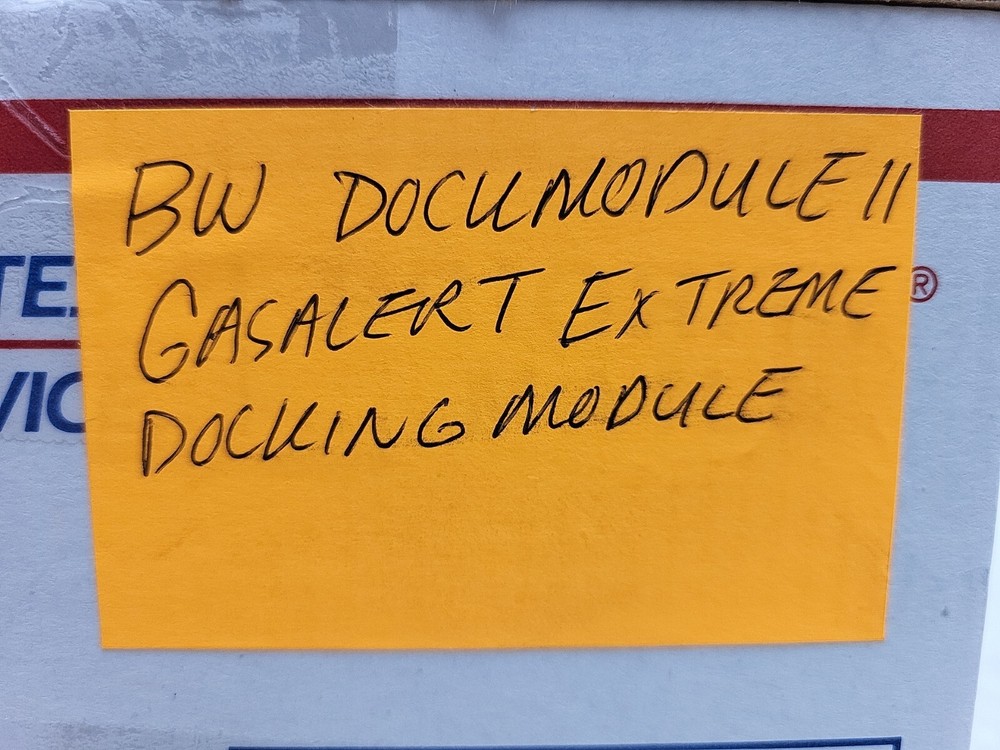 BW DOCKMODULE II
GASALERT EXTREME
DOCKING MODULE
®